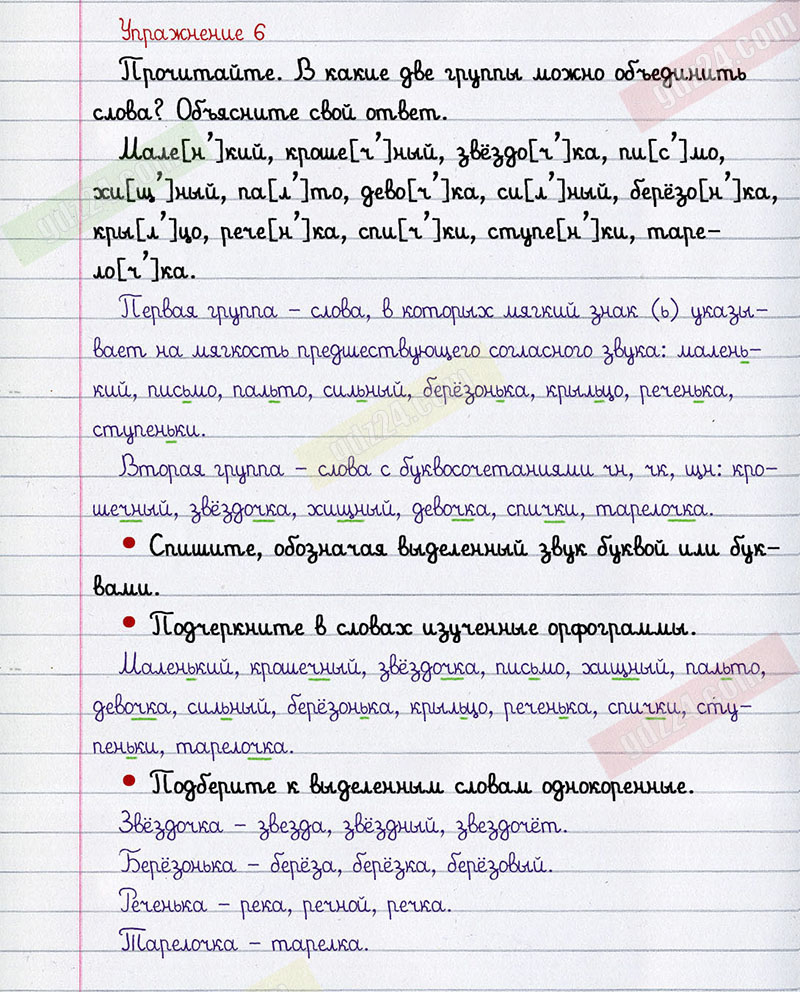 Упражнение 6
Прочитайте. В какие две группы можно объединить
слова? Объясните свой ответ.
Мале[н’]кий, кроше[ч’]ный, звёздо[ч’]ка, пи[с’]мо,
хи[щ’]ный, па[л’]то, дево[ч’]ка, си[л’]ный, берёзо[н’]ка,
кры[л’]цо, рече[н’]ка, спи[ч’]ки, ступе[н’]ки, таре-
ло[ч’]ка.
Первая группа – слова, в которых мягкий знак (ь) указы-
вает на мягкость предшествующего согласного звука: малень-
кий, письмо, пальто, сильный, берёзонька, крыльцо, реченька,
ступеньки.
Вторая группа – слова с буквосочетаниями чн, чк, щн: кро-
шечный, звёздочка, хищный, девочка, спички, тарелочка.
• Спишите, обозначая выделенный звук буквой или бук-
вами.
• Подчеркните в словах изученные орфограммы.
Маленький, крошечный, звёздочка, письмо, хищный, пальто,
девочка, сильный, берёзонька, крыльцо, реченька, спички, сту-
пеньки, тарелочка.
• Подберите к выделенным словам однокоренные.
Звёздочка – звезда, звёздный, звездочёт.
Берёзонька – берёза, берёзка, берёзовый.
Реченька – река, речной, речка.
Тарелочка – тарелка.
gdz24.com
gdz24.com
gdz24.com
gdz24.com